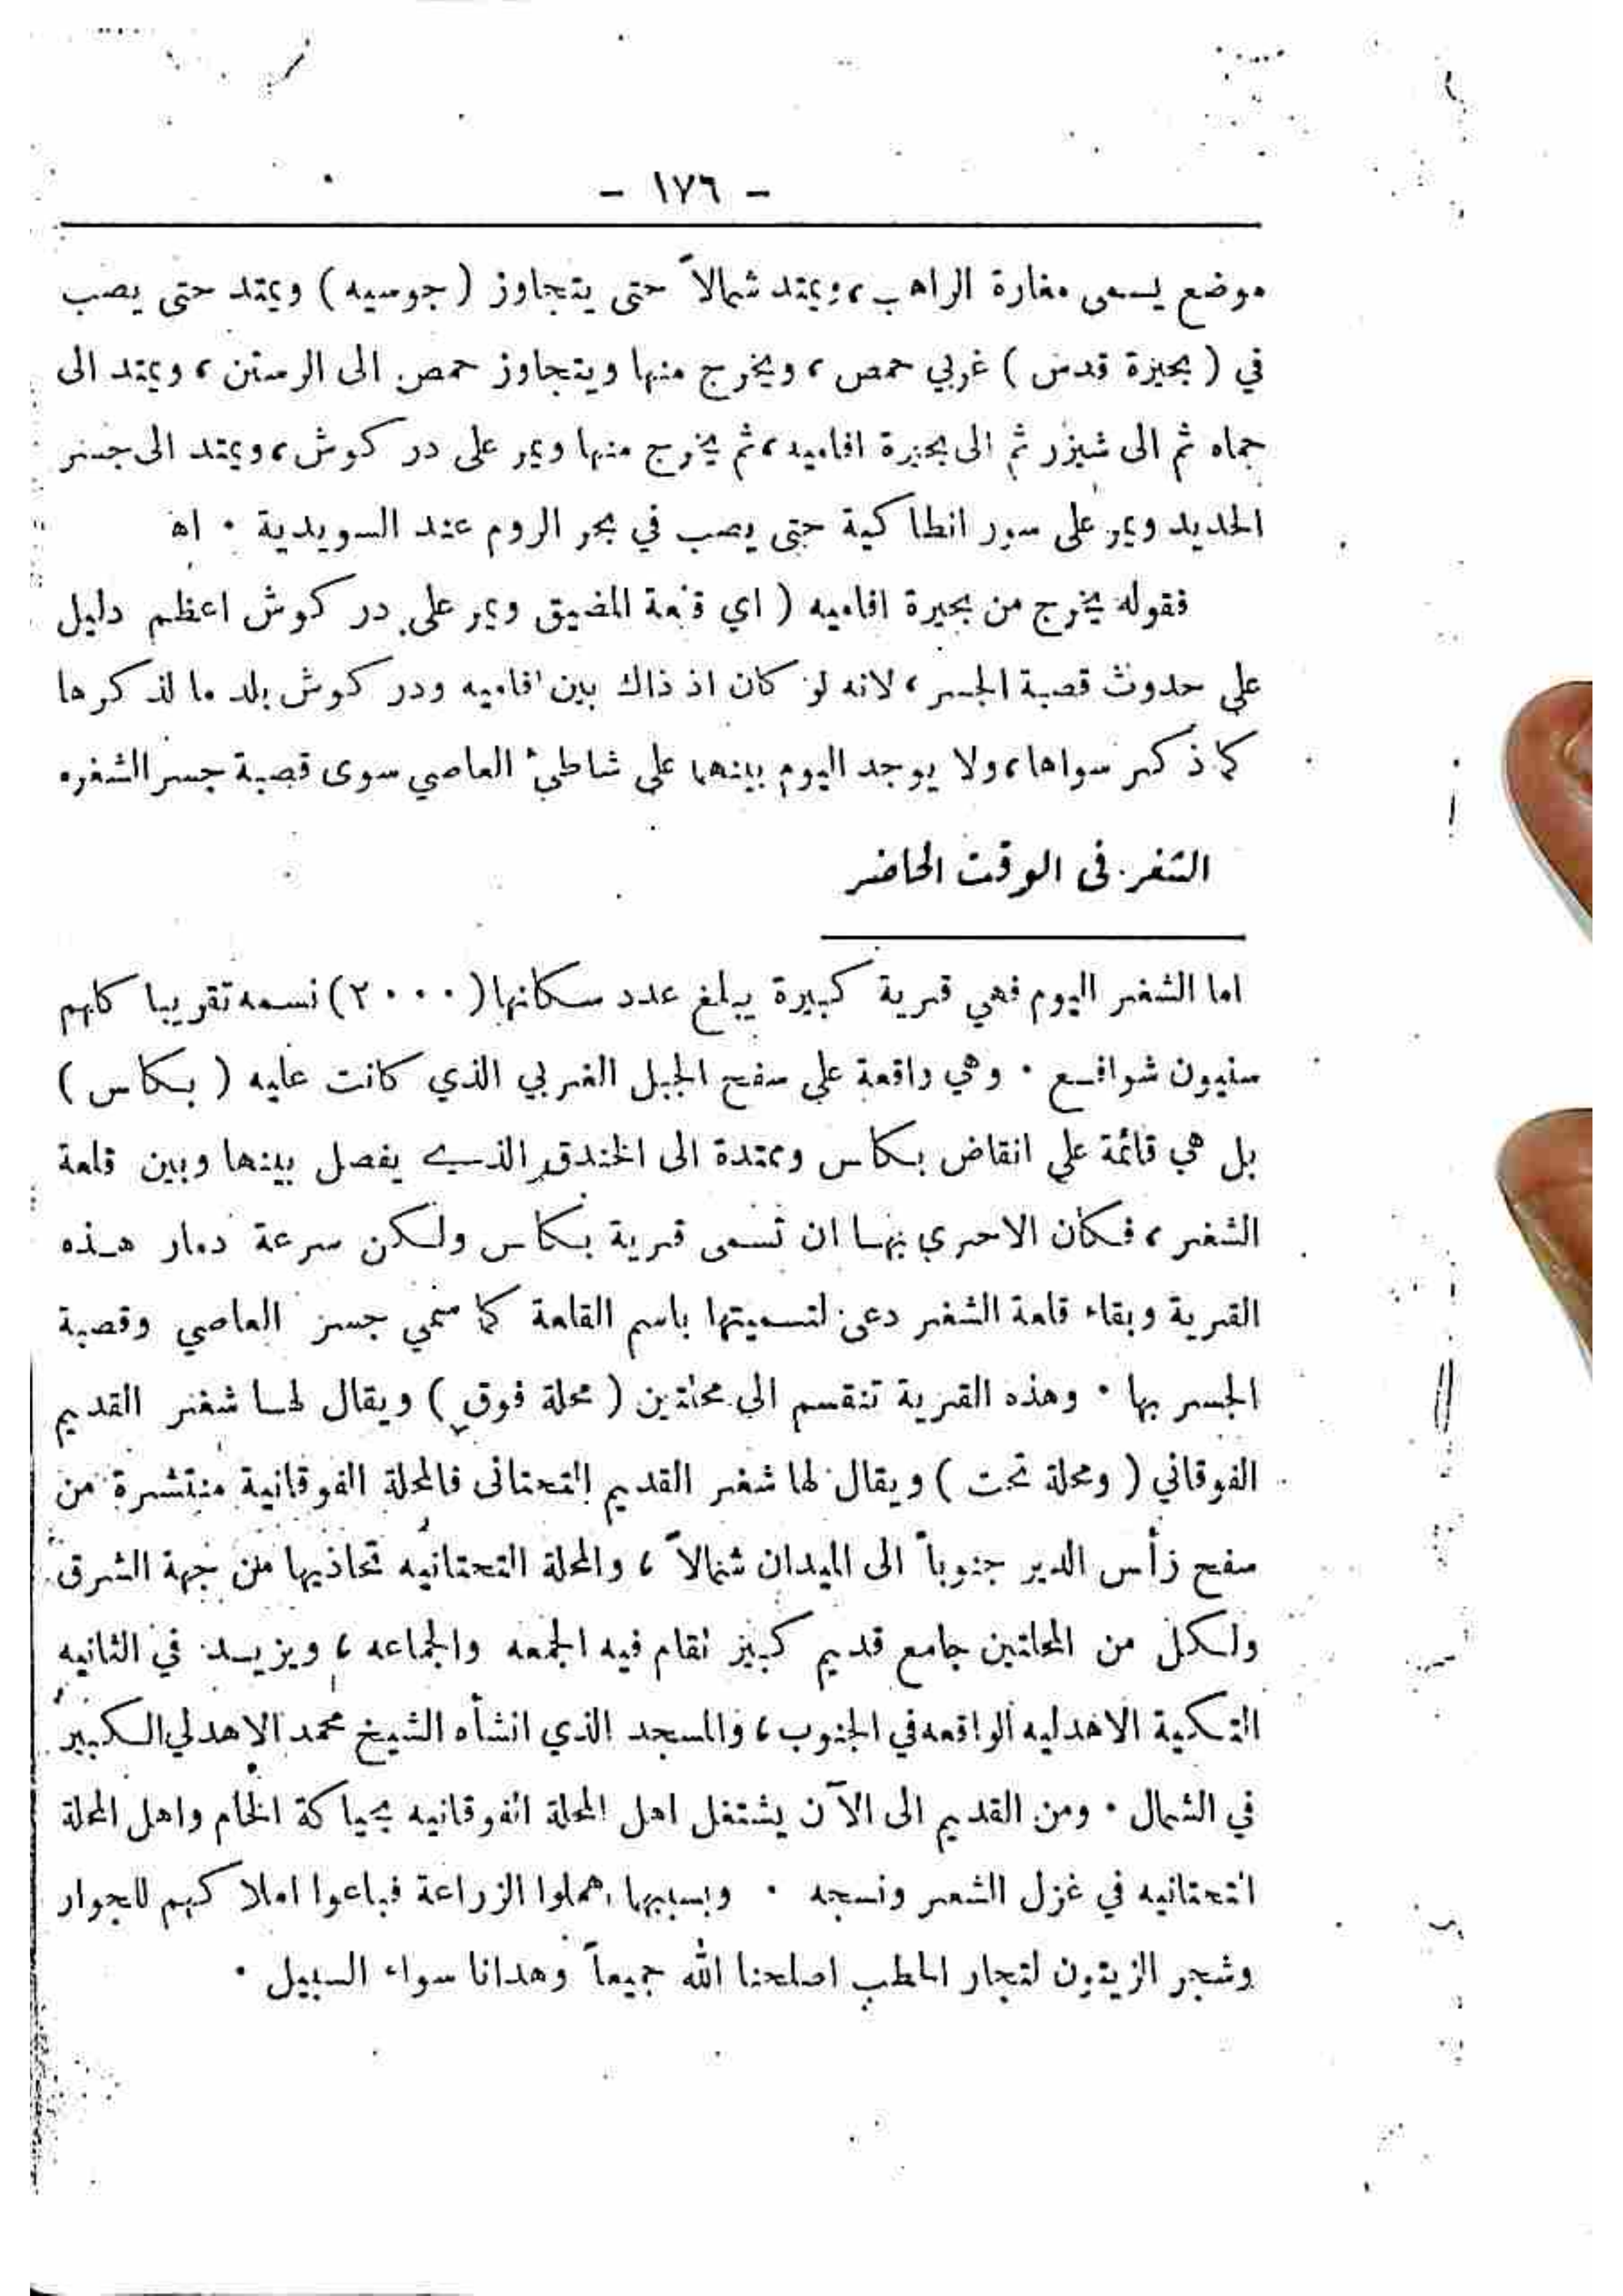 - ١٧٦ -
موضع يسمى مغارة الراهب، ويمتد شمالاً حتى يتجاوز (جوسيه) ويمتد حتى يصب
في (بحيرة قدس) غربي حمص، ويخرج منها ويتجاوز حمص الى الرستن، ويمتد الى
حماه ثم الى شيزر ثم الى بحيرة افاميه، ثم يخرج منها ويمر على در كوش، ويمتد الى جسر
الحديد ويمر على سور انطاكية حتى يصب في بحر الروم عند السويدية . اه
فقوله يخرج من بحيرة افاميه (اي قلعة المضيق ويمر على در كوش اعظم دليل
على حدوث قصبة الجسر، لانه لو كان اذ ذاك بين افاميه ودر كوش بلد ما لذكرها
كما ذكر سواها، ولا يوجد اليوم بينهما على شاطئ العاصي سوى قصبة جسر الشغره
الشغر في الوقت الحاضر
اما الشغر اليوم فهي قرية كبيرة يبلغ عدد سكانها (٢٠٠٠) نسمه تقريبا كلهم
سنيون شوافع . وهي واقعة على سفح الجبل الغربي الذي كانت عليه (بكاس)
بل هي قائمة على انقاض بكاس وممتدة الى الخندق الذي يفصل بينها وبين قلعة
الشغر، فكان الاحرى بها ان تسمى قرية بكاس ولكن سرعة دمار هذه
القرية وبقاء قلعة الشغر دعى لتسميتها باسم القلعة كما سمي جسر العاصي وقصبة
الجسر بها . وهذه القرية تنقسم الى محلتين (محلة فوق) ويقال لها شغر القديم
الفوقاني (ومحلة تحت) ويقال لها شغر القديم التحتانى فالمحلة الفوقانية منتشرة من
سفح رأس الدير جنوباً الى الميدان شمالاً، والمحلة التحتانيه تحاذيها من جهة الشرق
ولكل من المحلتين جامع قديم كبير تقام فيه الجمعه والجماعه، ويزيد في الثانيه
التكية الاهدليه الواقعه في الجنوب، والمسجد الذي انشأه الشيخ محمد الاهدلي الكبير
في الشمال . ومن القديم الى الآن يشتغل اهل المحلة الفوقانيه بحياكة الخام واهل المحلة
التحتانيه في غزل الشعر ونسجه . وبسببها اهملوا الزراعة فباعوا املاكهم للجوار
وشجر الزيتون لتجار الحطب اصلحنا الله جميعاً وهدانا سواء السبيل .